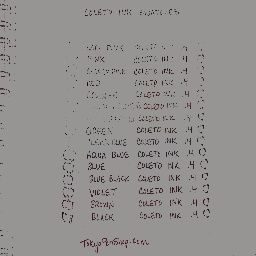 COLETO INK SWATCHES
PINK COLETO INK .4
COLETO INK .4
RED COLETO INK .4
COLETO INK .4
COLETO INK .4
COLETO INK .4
GREEN COLETO INK .4
COLETO INK .4
AQUA BLUE COLETO INK .4
BLUE COLETO INK .4
BLUE BLACK COLETO INK .4
VIOLET COLETO INK .4
BROWN COLETO INK .4
BLACK COLETO INK .4
TokyoPenShop.com